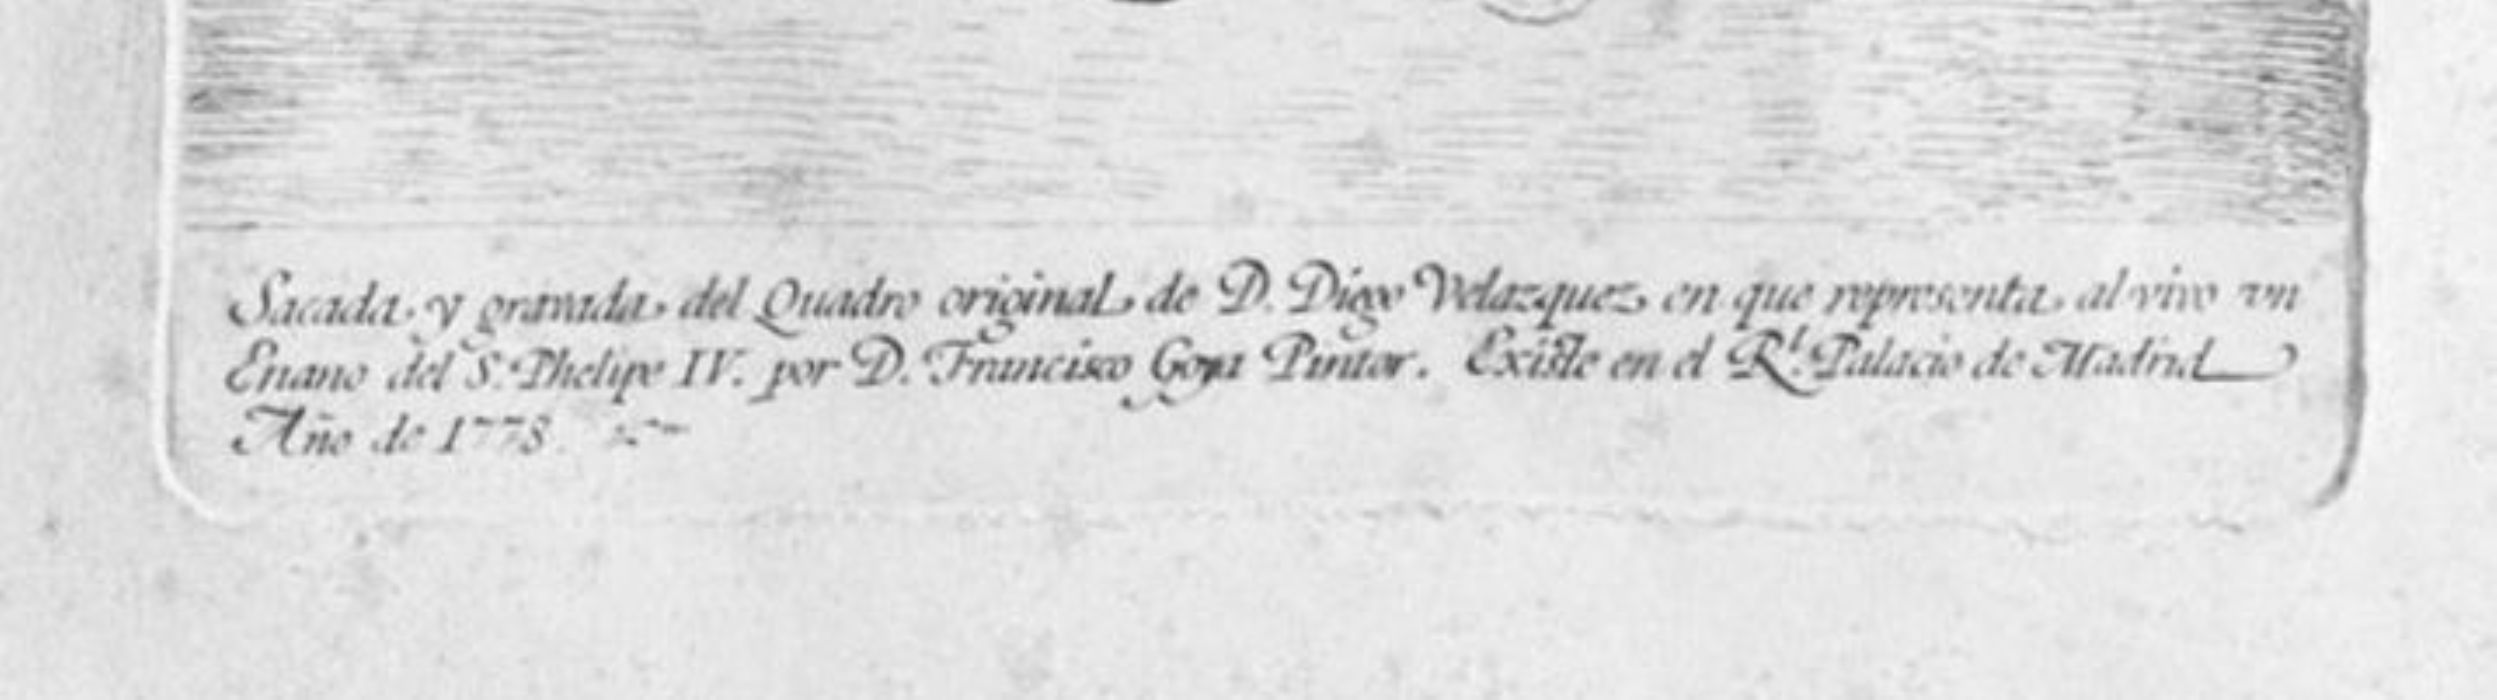 Sacada y gravada del Quadro original de D. Diego Velazquez en que representa al vivo vn
Enano del S. Phelipe IV. por D. Francisco Goya Pintor. Existe en el R.l Palacio de Madrid
Año de 1778.